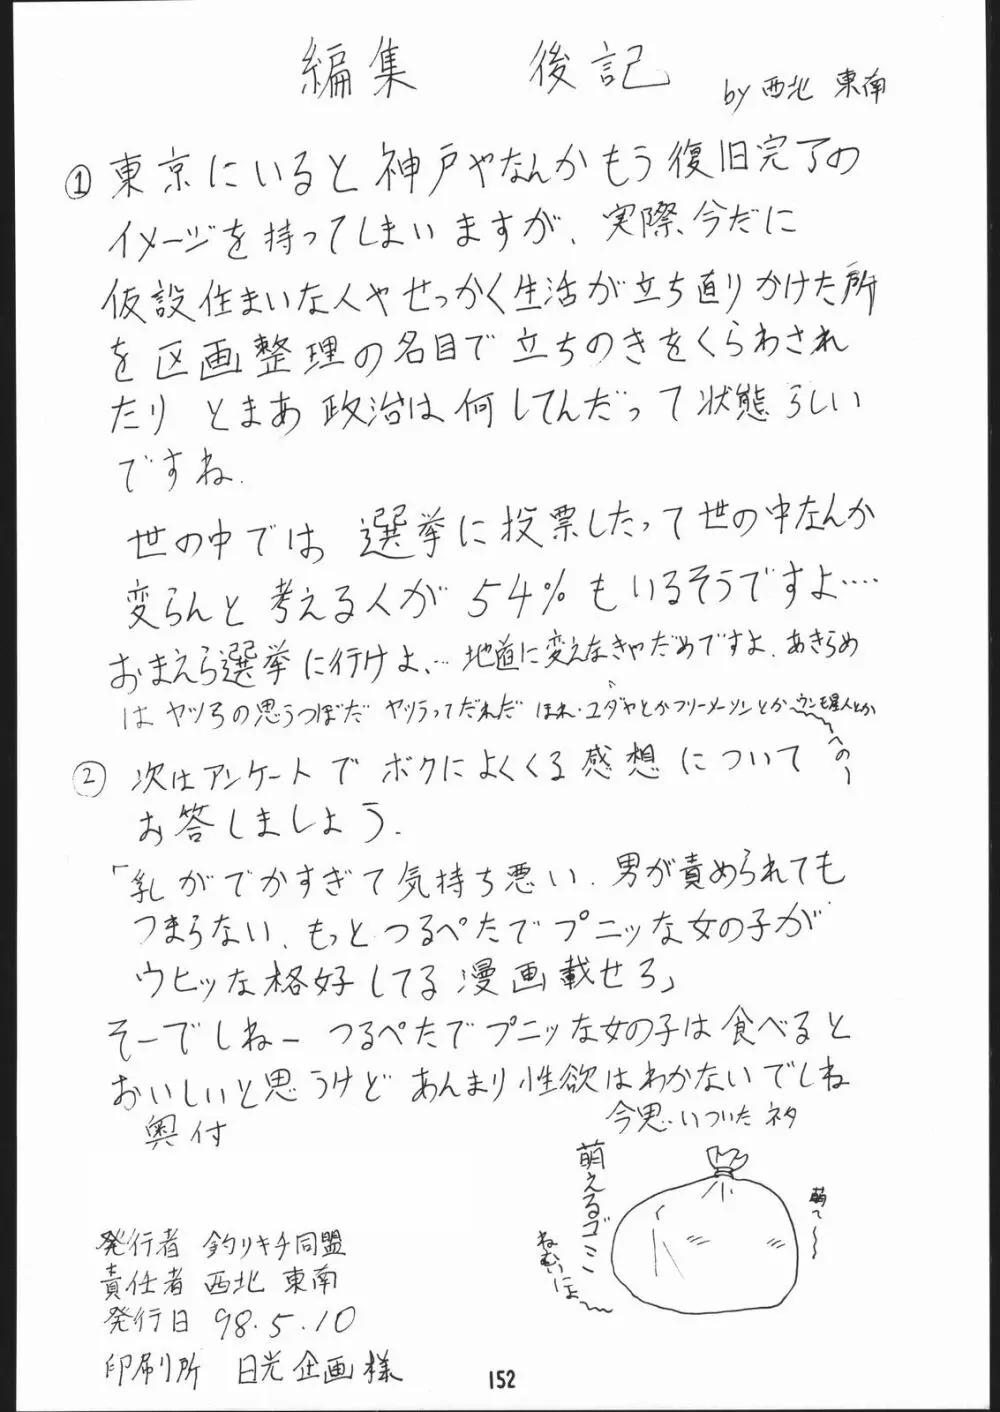 編集 後記
by 西北 東南
① 東京にいると神戸やなんかもう復旧完了の
イメージを持ってしまいますが、実際今だに
仮設住まいな人やせっかく生活が立ち直りかけた所
を区画整理の名目で立ちのきをくらわされ
たり とまあ 政治は何してんだって状態らしい
ですね.
世の中では 選挙に投票したって世の中なんか
変らんと考える人が54%もいるそうですよ‥‥
おまえら選挙に行けよ、… 地道に変えなきゃだめですよ、あきらめ
はヤツらの思うつぼだ ヤツラってだれだ ほれ・ユダヤとかフリーメーソンとか〜ウンモ星人とか
〜へのー
② 次はアンケートでボクによくくる感想について
お答しましょう.
「乳がでかすぎて気持ち悪い、男が責められても
つまらない、もっとつるぺたでプニッな女の子が
ウヒッな格好してる漫画載せろ」
そーでしねー つるぺたでプニッな女の子は食べると
おいしいと思うけど あんまり性欲はわかないでしね
今思いついたネタ
奥付
萌えるゴミ
萌え〜〜
ねむいにょ〜
発行者 釣りキチ同盟
責任者 西北 東南
発行日 98.5.10
印刷所 日光企画様
152